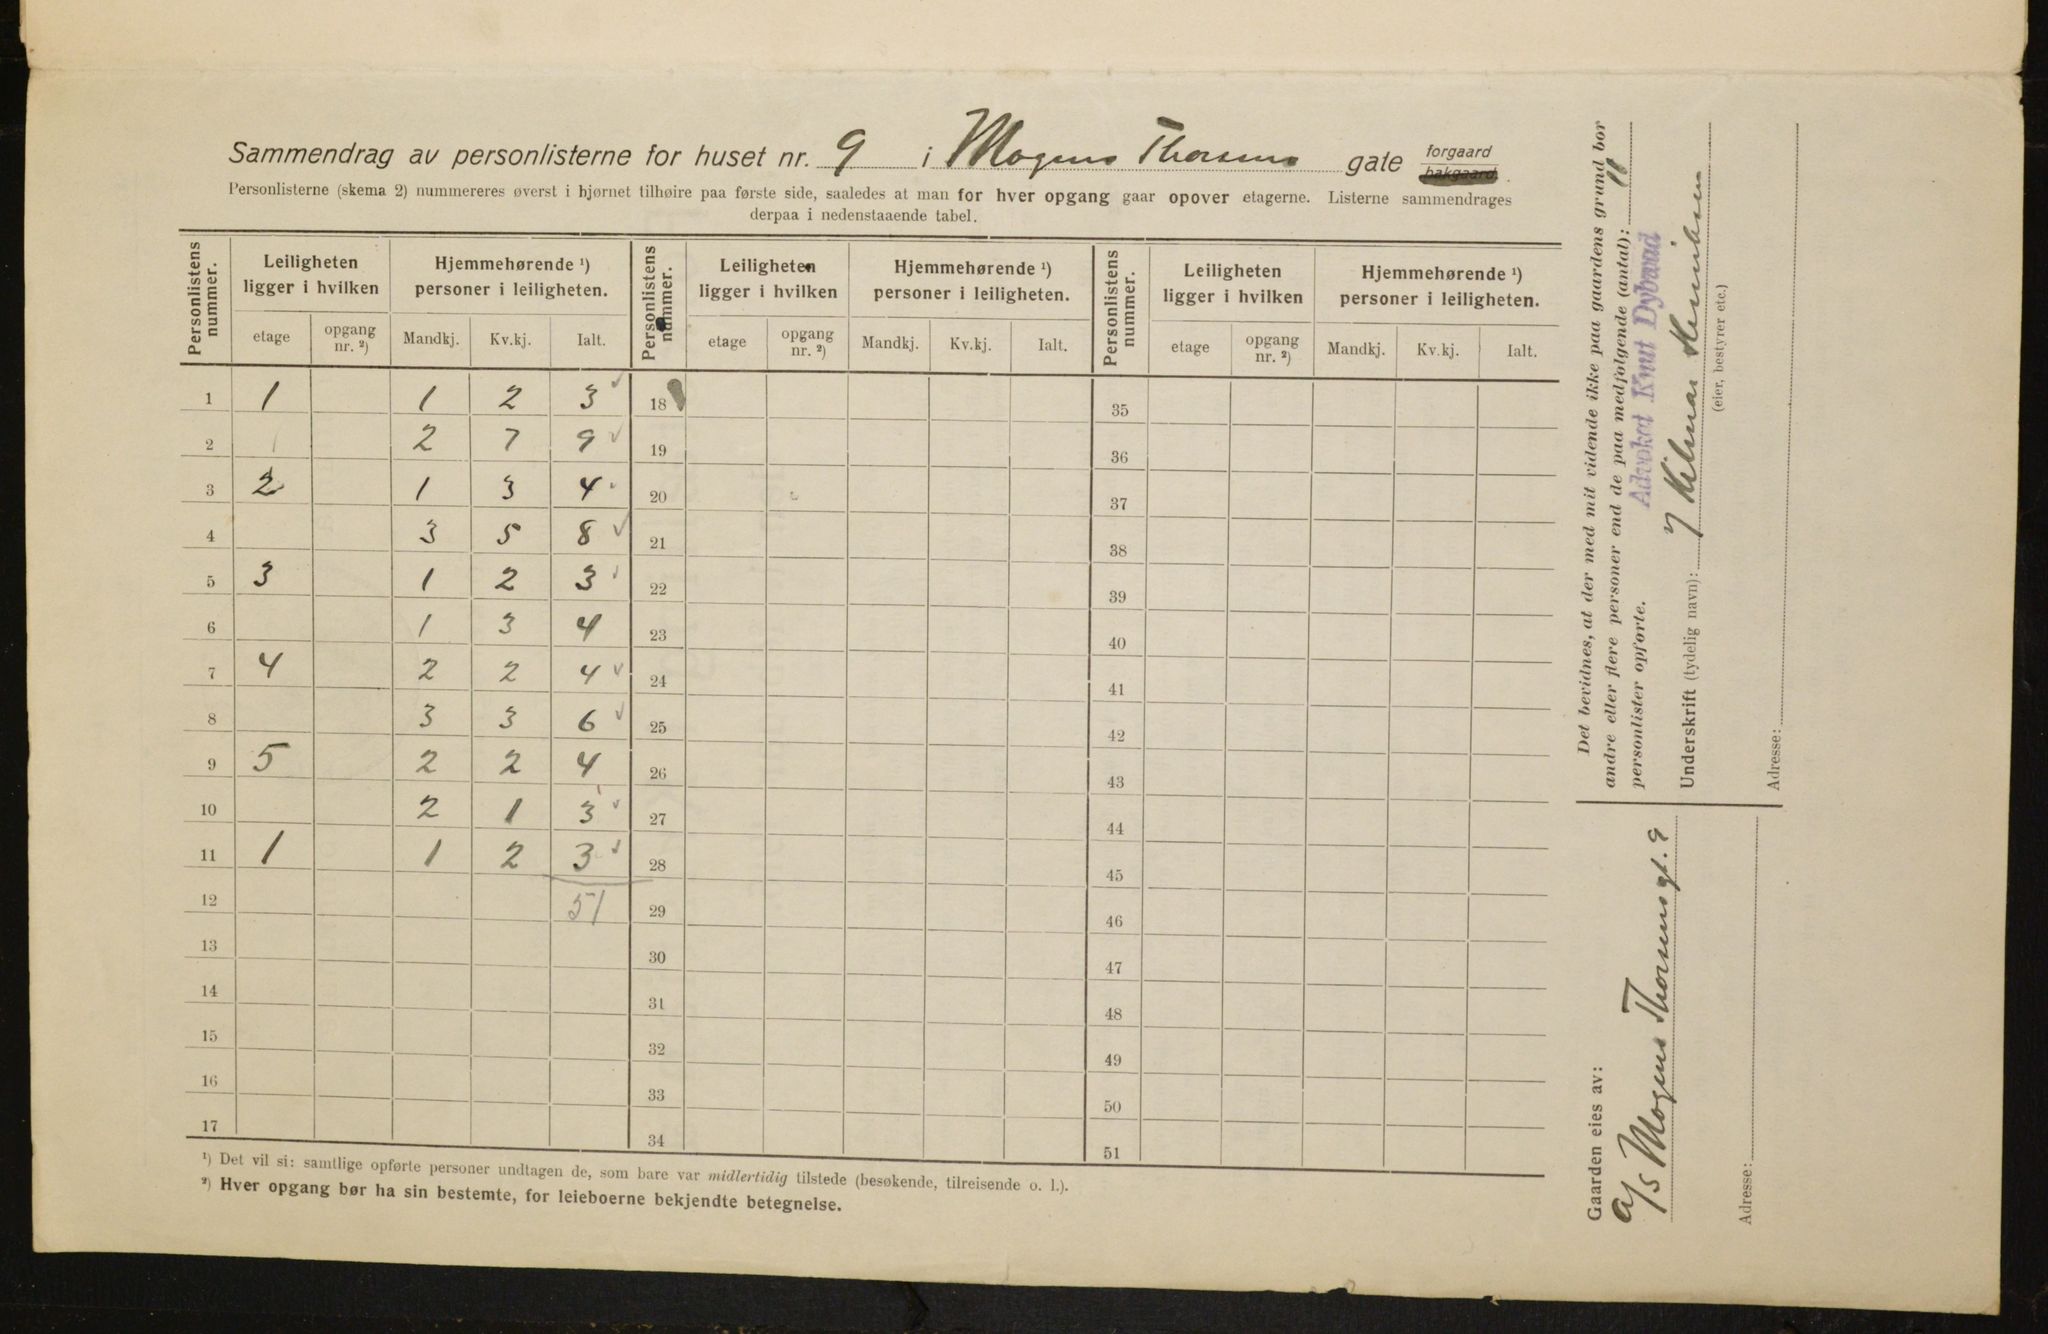 Sammendrag av personlisterne for huset nr. 9 i Mogens Thorsens gate forgaard bakgaard.
Personlisterne (skema 2) nummereres øverst i hjørnet tilhøire paa første side, saaledes at man for hver opgang gaar opover etagerne. Listerne sammendrages
derpaa i nedenstaaende tabel.
Personlistens nummer. Leiligheten ligger i hvilken Hjemmehørende ¹) personer i leiligheten. Personlistens nummer. Leiligheten ligger i hvilken Hjemmehørende ¹) personer i leiligheten. Personlistens nummer. Leiligheten ligger i hvilken Hjemmehørende ¹) personer i leiligheten.
etage opgang nr. ²) Mandkj. Kv.kj. Ialt. etage opgang nr. ²) Mandkj. Kv.kj. Ialt. etage opgang nr. ²) Mandkj. Kv.kj. Ialt.
1 1 1 2 3 18 35
2 1 2 7 9 19 36
3 2 1 3 4 20 37
4 3 5 8 21 38
5 3 1 2 3 22 39
6 1 3 4 23 40
7 4 2 2 4 24 41
8 3 3 6 25 42
9 5 2 2 4 26 43
10 2 1 3 27 44
11 1 1 2 3 28 45
12 51 29 46
13 30 47
14 31 48
15 32 49
16 33 50
17 34 51
¹) Det vil si: samtlige opførte personer undtagen de, som bare var midlertidig tilstede (besøkende, tilreisende o. l.).
²) Hver opgang bør ha sin bestemte, for leieboerne bekjendte betegnelse.
Det bevidnes, at der med mit vidende ikke paa gaardens grund bor
andre eller flere personer end de paa medfølgende (antal): 11
personlister opførte.
Advokat Knut Dybwad
Underskrift (tydelig navn): Hilmar
(eier, bestyrer etc.)
Adresse:
Gaarden eies av:
A/S Mogens Thorsensgt. 9
Adresse: